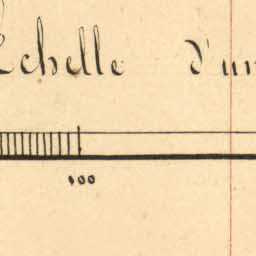 Echelle d'un
100